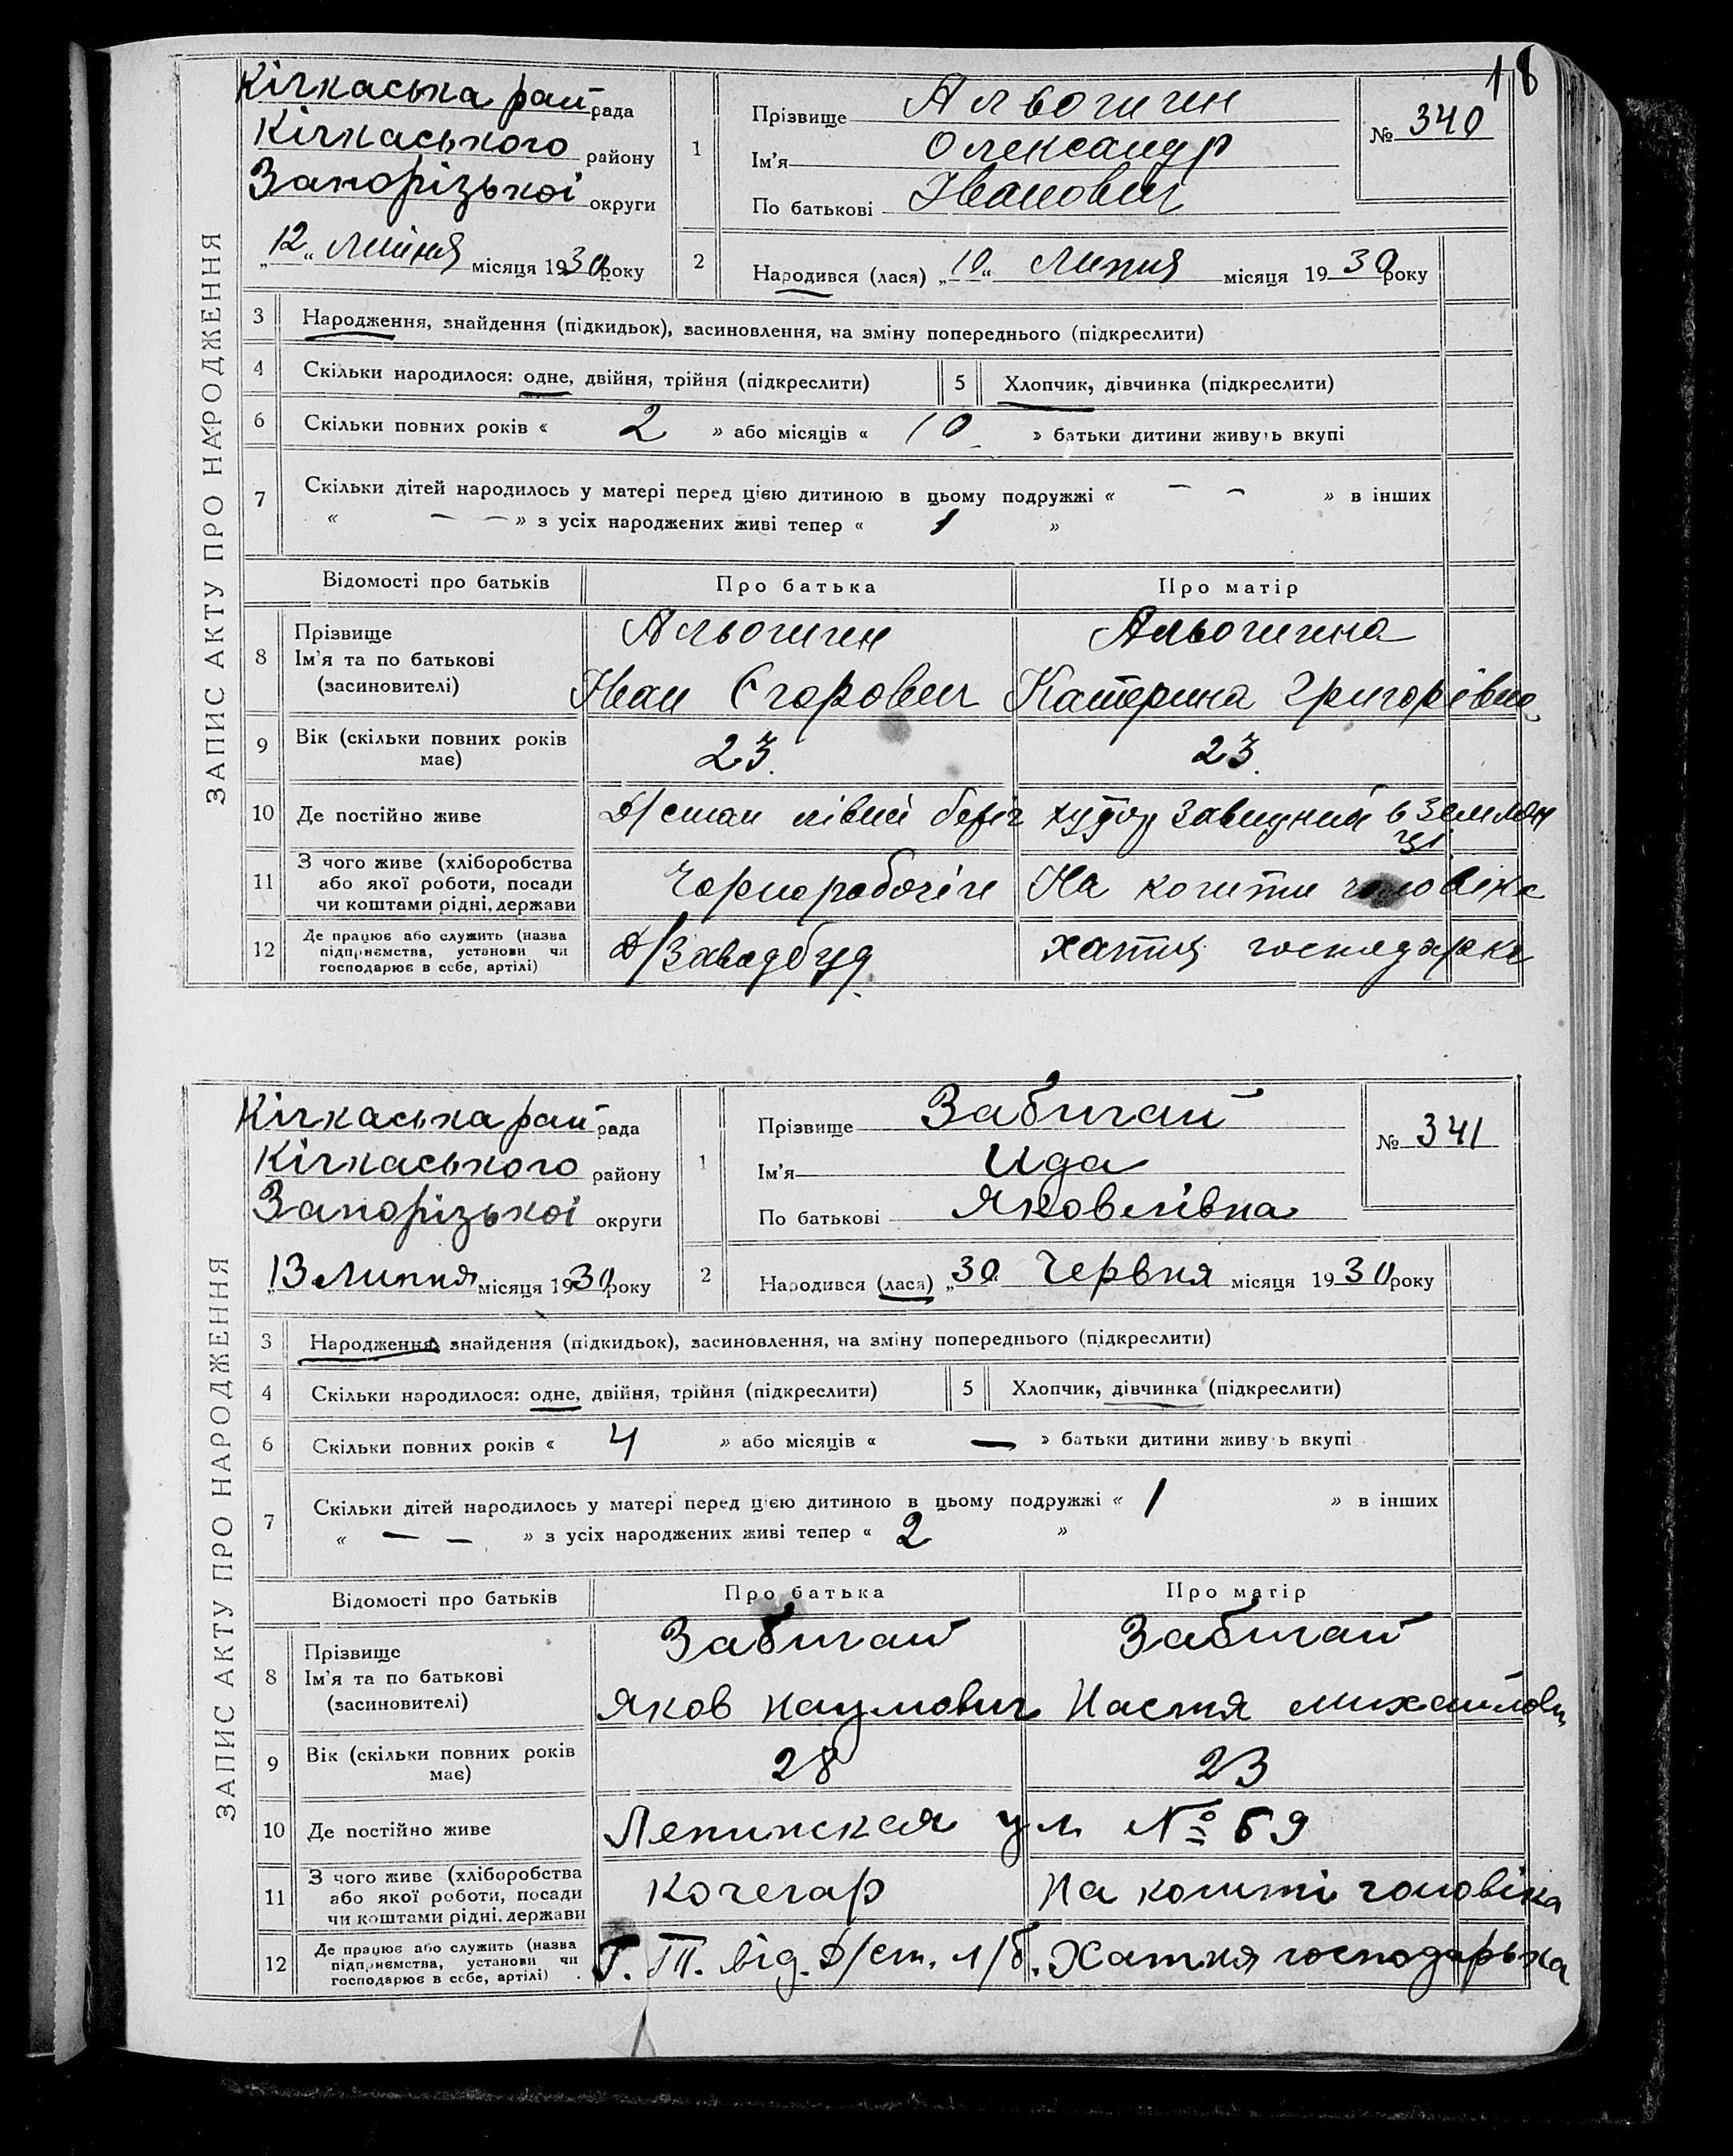 18
ЗАПИС АКТУ ПРО НАРОДЖЕННЯ
Кічкаська рай рада
Кічкаського району
Запорізької округи
„12“ Липня місяця 1930 року
1
Прізвище Альочичен
Ім'я Олександр
По батькові Іванович
№ 340
2
Народився (лася) „10“ Липня місяця 1930 року
3 Народження, знайдення (підкидьок), засиновлення, на зміну попереднього (підкреслити)
4 Скільки народилося: одне, двійня, трійня (підкреслити) 5 Хлопчик, дівчинка (підкреслити)
6 Скільки повних років « 2 » або місяців « 10 » батьки дитини живуть вкупі
7 Скільки дітей народилось у матері перед цією дитиною в цьому подружжі « — — » в інших
« — — » з усіх народжених живі тепер « 1 »
Відомості про батьків Про батька Про матір
8 Прізвище
Ім'я та по батькові
(засиновителі)
Іван Єгорович Катерина Григорівна
9 Вік (скільки повних років має) 23. 23.
10 Де постійно живе Д/стан лівий беріг хутор Завидний в землян
ці
11 З чого живе (хліборобства або якої роботи, посади чи коштами рідні, держави Чорноробочій На кошти чоловіка
12 Де працює або служить (назва підприємства, установи чи господарює в себе, артілі) Д/Заводбуд. хатня господарка
ЗАПИС АКТУ ПРО НАРОДЖЕННЯ
Кічкаська рай рада
Кічкаського району
Запорізької округи
„13 Липня місяця 1930 року
1
Прізвище Забигай
Ім'я Ида
По батькові Яковлівна
№ 341
2
Народився (лася) „30 Червня місяця 1930 року
3 Народження, знайдення (підкидьок), засиновлення, на зміну попереднього (підкреслити)
4 Скільки народилося: одне, двійня, трійня (підкреслити) 5 Хлопчик, дівчинка (підкреслити)
6 Скільки повних років « 4 » або місяців « — » батьки дитини живуть вкупі
7 Скільки дітей народилось у матері перед цією дитиною в цьому подружжі « 1 » в інших
« — — » з усіх народжених живі тепер « 2 »
Відомості про батьків Про батька Про матір
8 Прізвище
Ім'я та по батькові
(засиновителі)
Забигай Забигай
Яков Наумович Настя Михайловн
9 Вік (скільки повних років має) 28 23
10 Де постійно живе Ленинская ул № 69
11 З чого живе (хліборобства або якої роботи, посади чи коштами рідні, держави Кочегар На кошти чоловіка
12 Де працює або служить (назва підприємства, установи чи господарює в себе, артілі) Т. Т. від. Д/ст. л/б. Хатня господарька